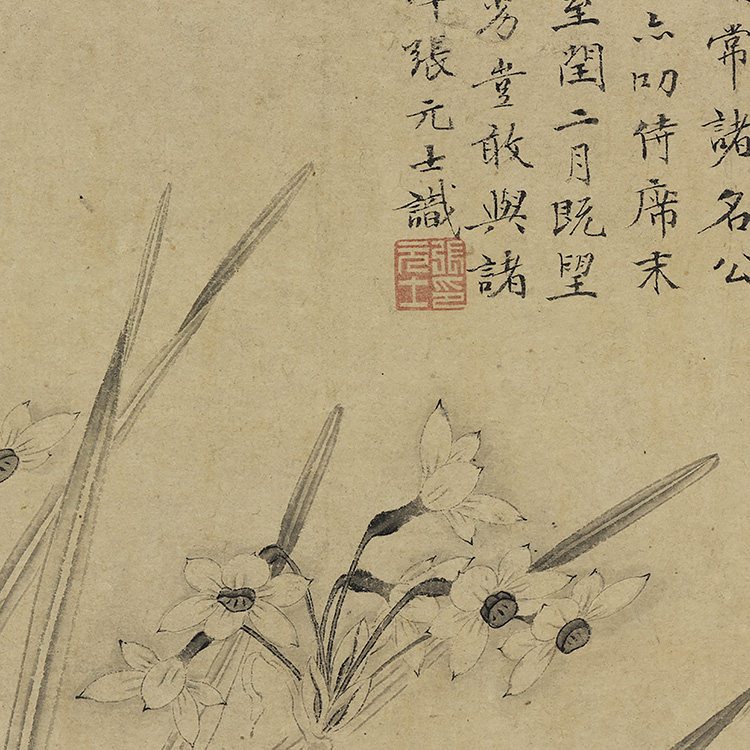 常諸名公
亦叨侍席末
至閏二月既望
芳豈敢與諸
張元士識
張元士印